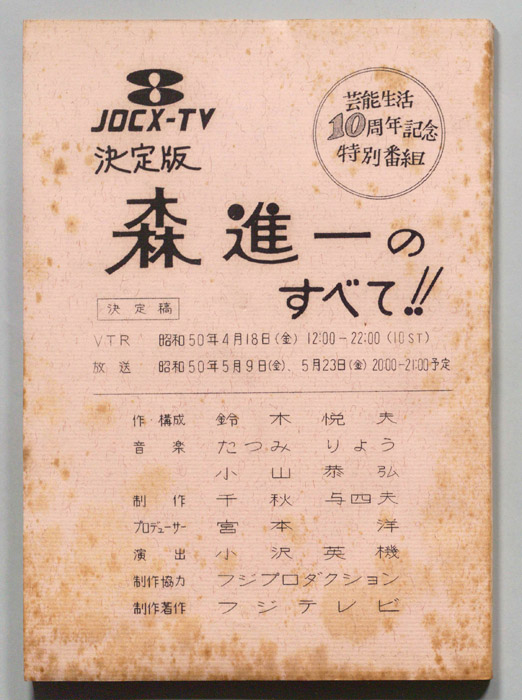 8
JOCX-TV
芸能生活
10周年記念
特別番組
決定版
森進一の
すべて!!
決定稿
V.T.R 昭和50年4月18日(金) 12:00-22:00 (10ST)
放送 昭和50年5月9日(金)、5月23日(金) 20:00-21:00予定
作・構成 鈴木悦夫
音楽 たつみりょう
小山恭弘
制作 千秋与四夫
プロデューサー 宮本洋
演出 小沢英機
制作協力 フジプロダクション
制作著作 フジテレビ